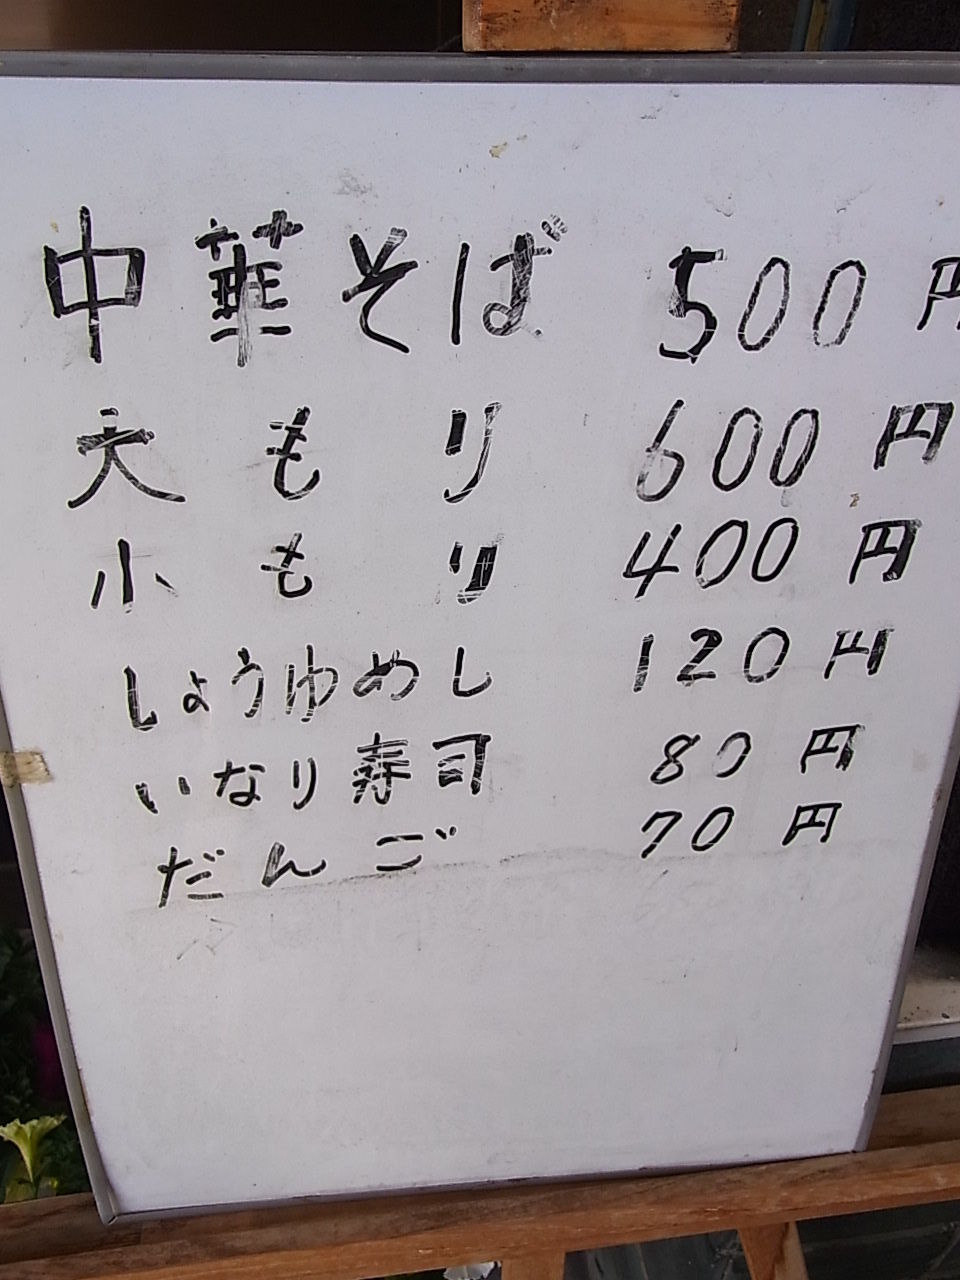 中華そば 500円
大もり 600円
小もり 400円
しょうゆめし 120円
いなり寿司 80円
だんご 70円